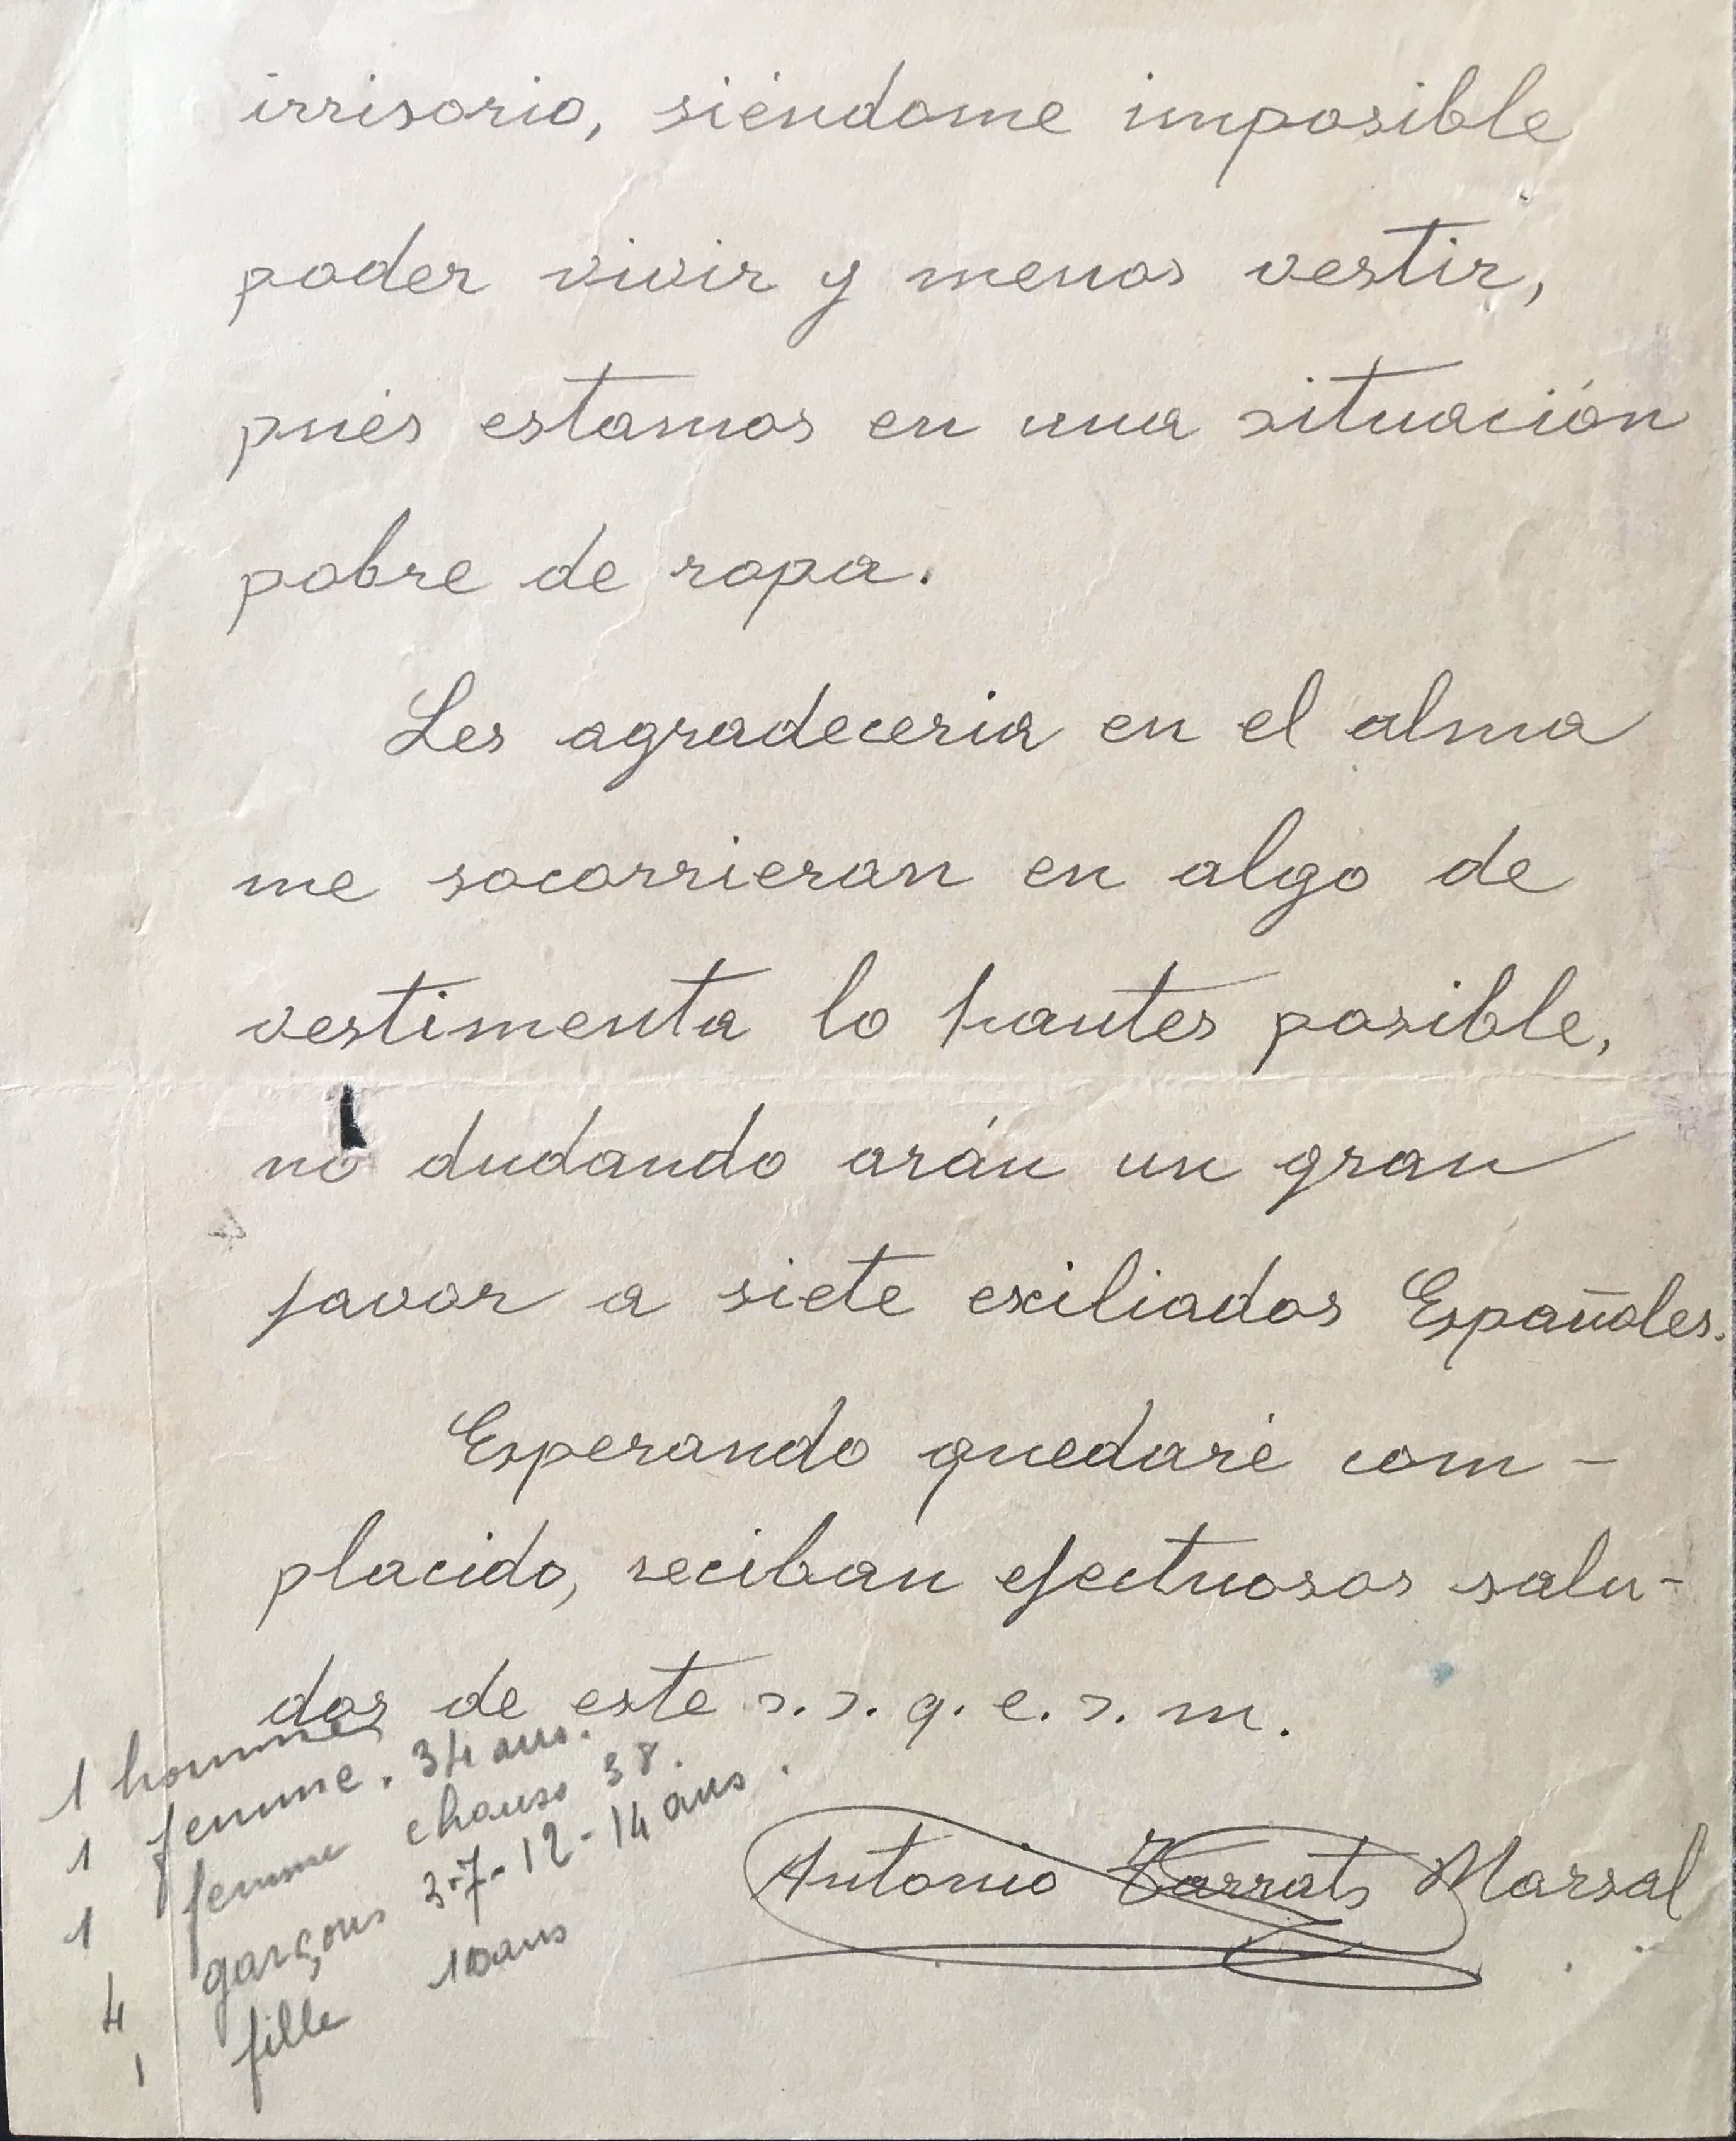 irrisorio, siéndome imposible
poder vivir y menos vestir,
pués estamos en una situación
pobre de ropa.
Les agradeceria en el alma
me socorrieran en algo de
vestimenta lo hantes posible,
no dudando arán un gran
favor a siete exiliados Españoles.
Esperando quedaré com-
placido, reciban efectuosos salu-
dos de este s. s. q. e. s. m.
1 homme
1 femme. 34 ans.
1 femme chauss 38.
4 garçons 3-7-12-14 ans.
1 fille 10 ans
Antonio Tarrats Marsal